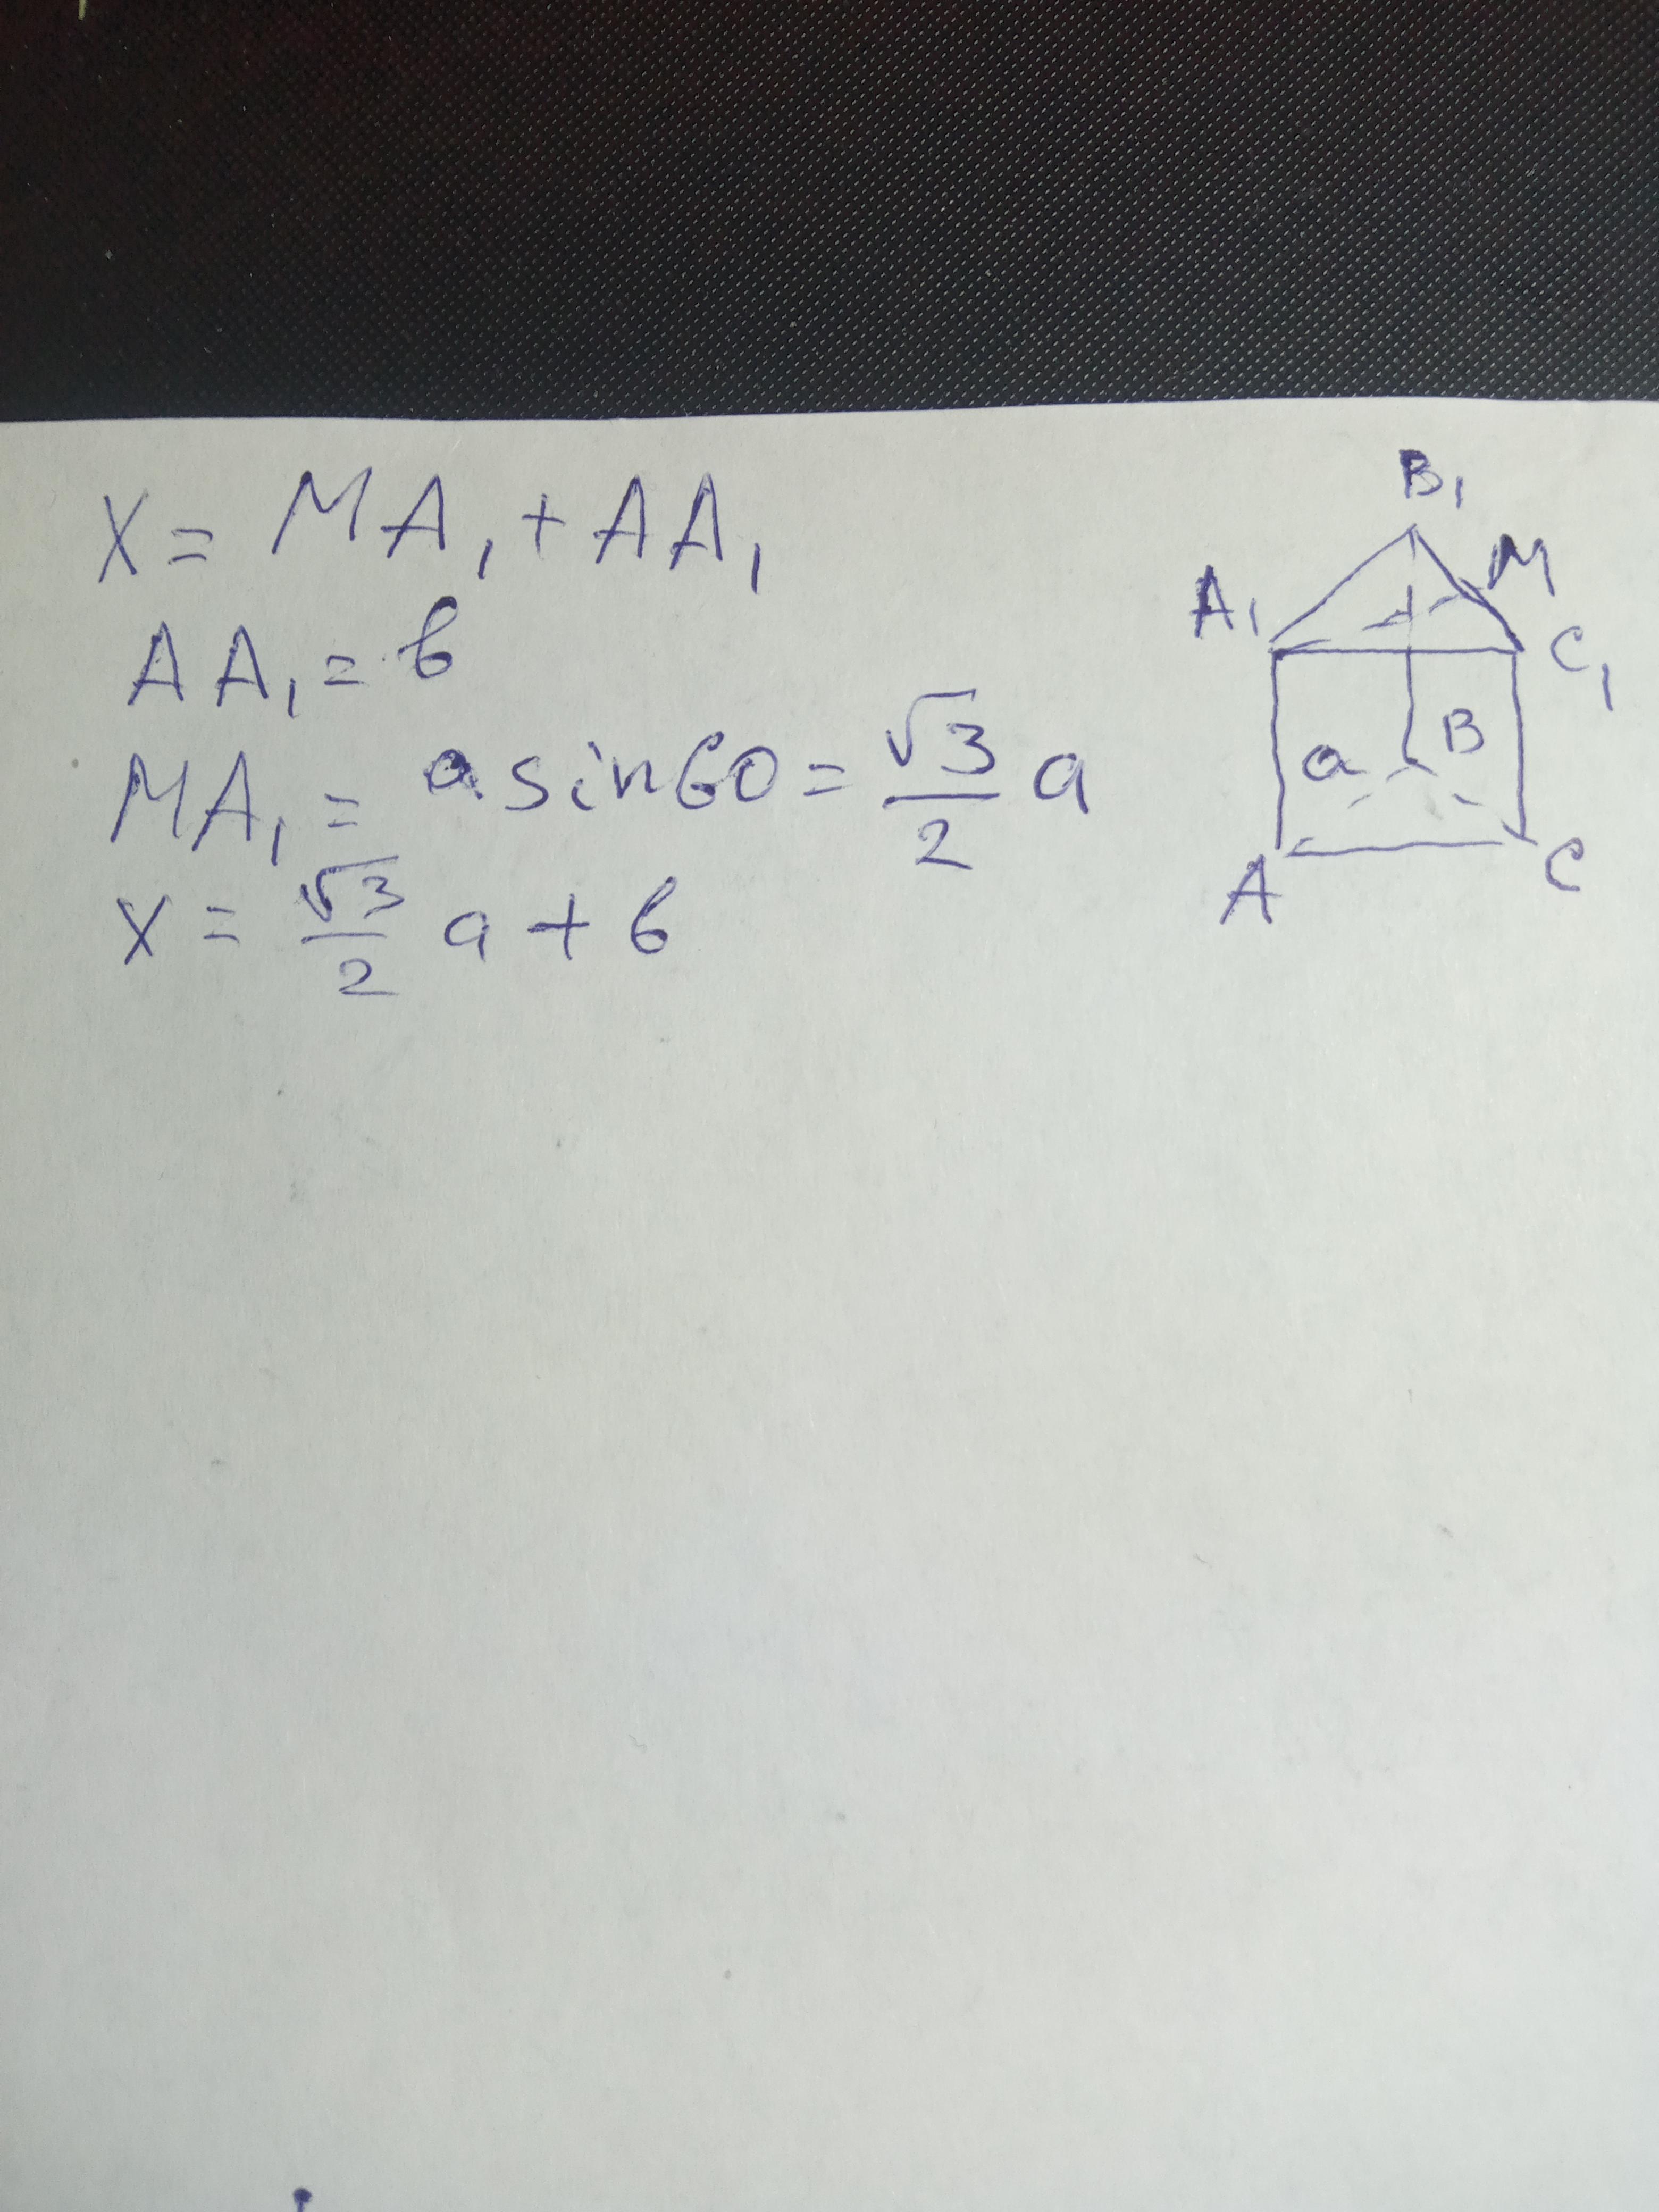 X = MA₁ + AA₁
AA₁ = b
MA₁ = a sin60 = √3/2 a
X = √3/2 a + b
B₁
M
A₁
C₁
B
a
A
C